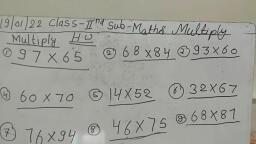 19/01/22 Class-IInd Sub-Maths Multiply
Multiply H W
① 97 x 65 ② 68 x 84 ③ 93 x 60
④ 60 x 70 ⑤ 14 x 52 ⑥ 32 x 67
⑦ 76 x 94 ⑧ 46 x 75 ⑨ 68 x 81